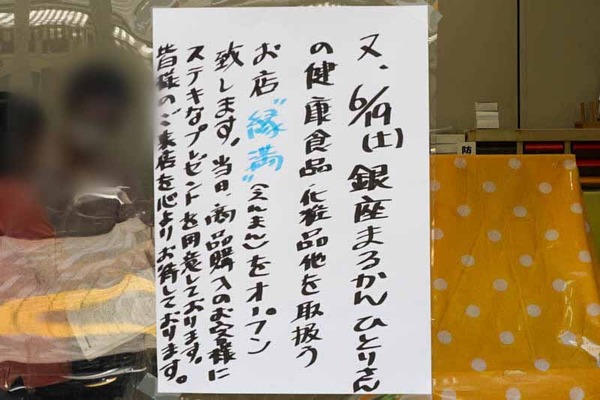 又、6/19(土)銀座まるかんひとりさん
の健康食品・化粧品他を取扱う
お店“縁満”(えんまん)をオープン
致します。当日、商品購入のお客様に
ステキなプレゼントを用意しております。
皆様のご来店を心よりお待しております。
防